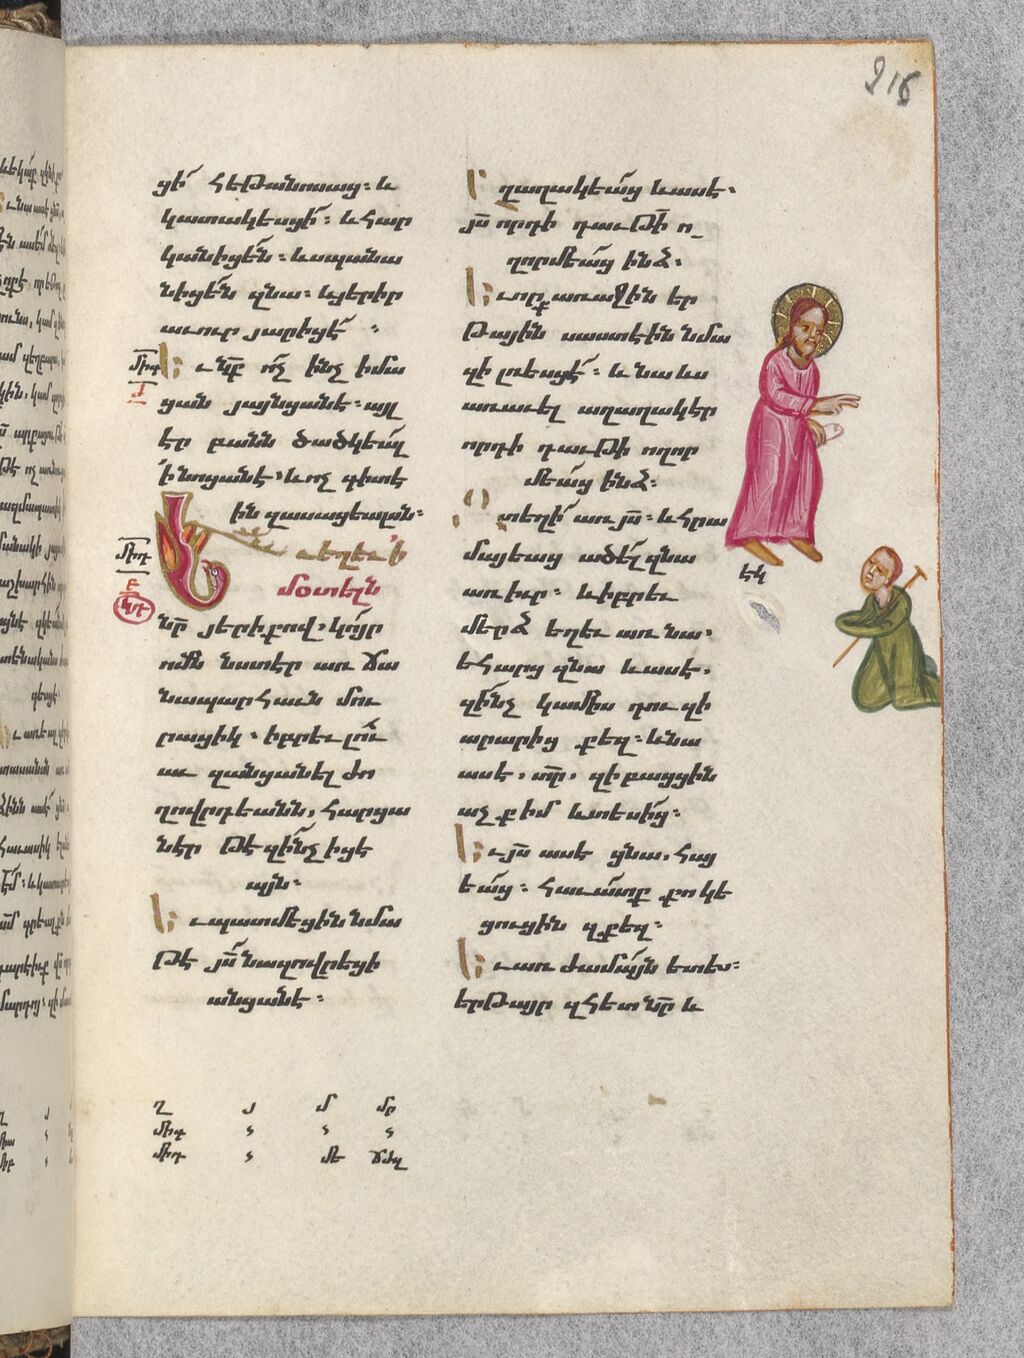 216
ցի՛ հեթանոսաց։ և
կատակեսցի՛։ և հար
կանիցե՛ն։ և սպանա
նիցե՛ն զնա։ և յերիր
աւուր յարիցէ՛ ։
Եւ նք ո՛չ ինչ իմա
ցան յայնցանէ։ այլ
էր բանն ծածկեա՛լ
՛ի նոցանէ։ և ոչ գիտէ
ին զասացեալսն։
Եւ եղեւ ՛ի
մօտելն
նր յերիքով, կո՛յր
ոմն նստէր առ ճա
նապարհաւն մու
րացիկ. իբրեւ լո՛ւ
աւ զանցանել ժո
ղովրդեանն, հարցա
նէր թէ զի՛նչ իցէ
այն։
Եւ պատմեցին նմա
թէ յս նազովրեցի
անցանէ։
Ի՛ ղաղակեա՛ց և ասէ.
յս որդի դաւթի՛ ո
ղորմեա՛ց ինձ։
Եւ որք առաջին եր
թային սաստէին նմա
զի լռեսցէ՛։ և նա ևս
առաւել աղաղակէր
որդի դաւթի ողոր
մեա՛ց ինձ։
տեղի՛ առ յս։ և հրա
մայեաց ածել զնա
առ իւր։ և իբրեւ
մերձ եղեւ առ նա,
եհարց զնա և ասէ.
զի՛նչ կամիս դու զի
արարից քեզ։ և նա
ասէ, տր, զի բացցին
աչք իմ և տեսի՛ց։
Եւ յս ասէ ցնա, հայ
եա՛ց։ հաւա՛տք քո կե
ցուցին զքեզ։
Եւ առ ժամայն ետես։
երթայր զհետ նր և